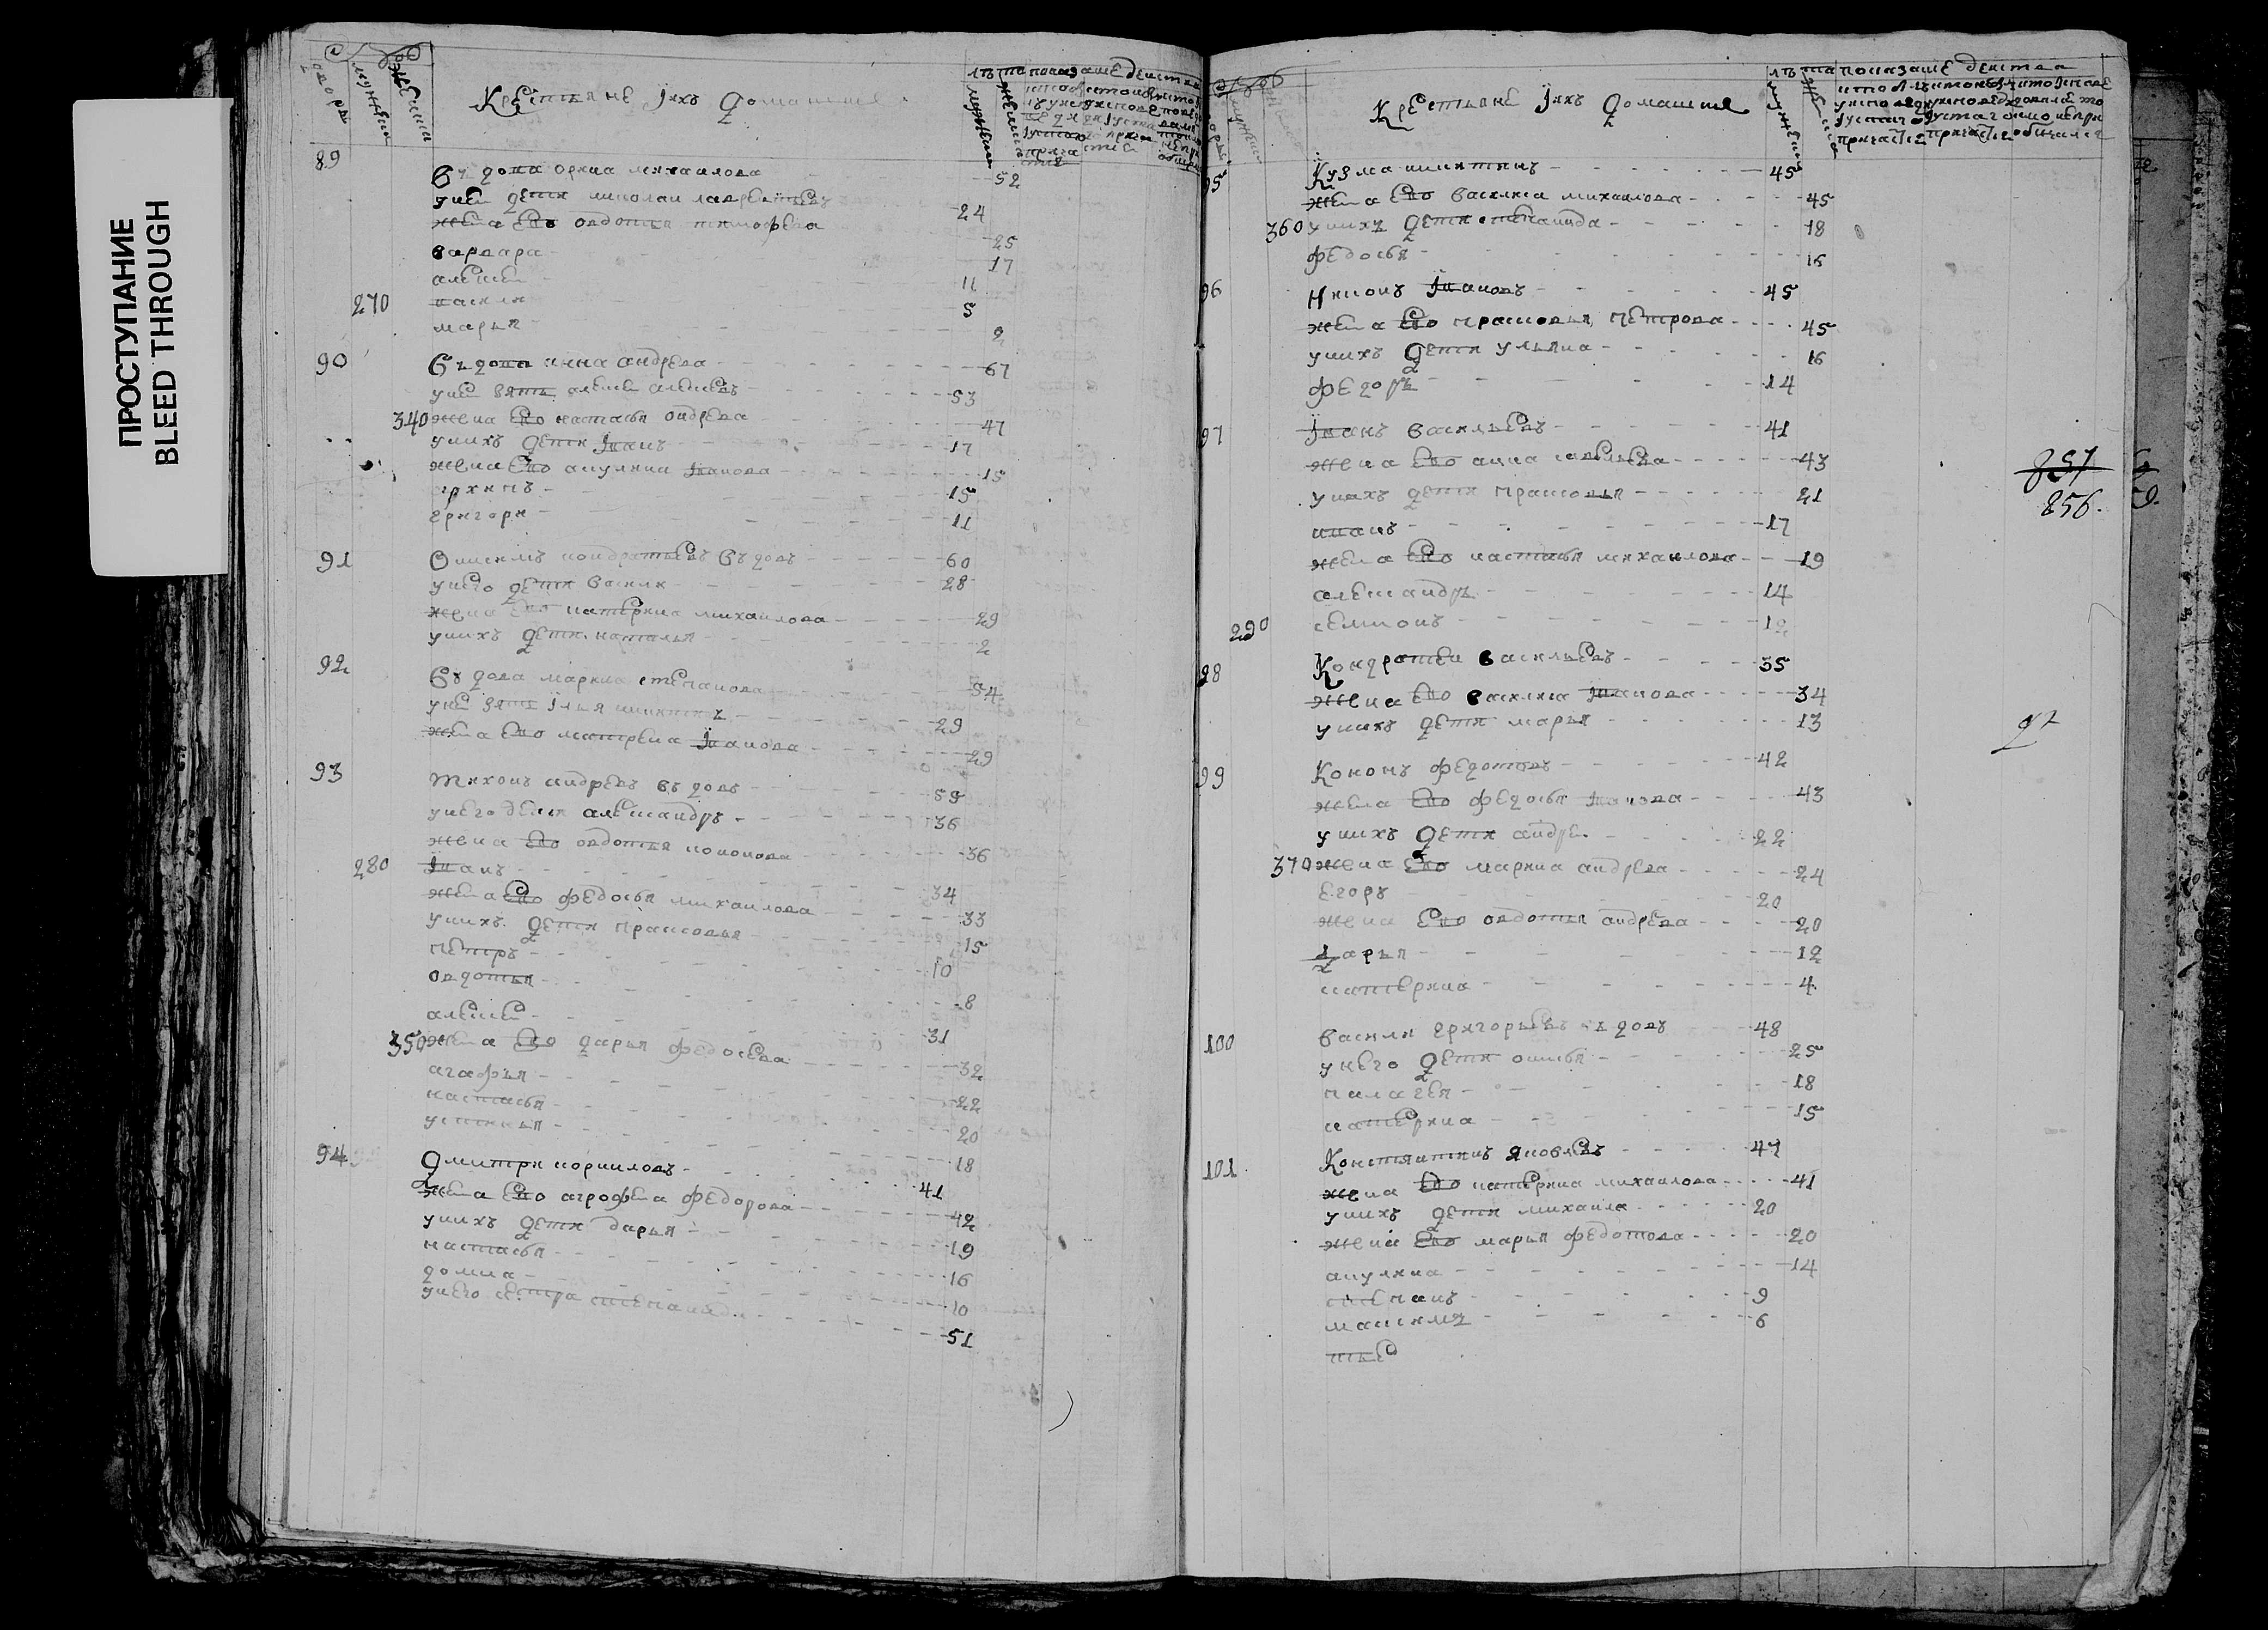 ПРОСТУПАНИЕ
BLEED THROUGH
Крестьяне їихъ домашние
89 Въдова орина михаилова 52
унеи дети николаи лаврентьевъ 24
жена ево овдотья тимофеева 25
варвара 17
алексеи 11
270 василеи 5
марья 2
90 Въдова анна андреева 67
унеи зять алексеи алексеевъ 53
340 жена ево настасья ондреева 47
унихъ дети їванъ 17
жена ево акулина їванова 15
архипъ 15
григори 11
91 Онисимъ кондратьевъ въдовъ 60
унего дети васили 28
жена ево катерина михаилова 29
унихъ дети наталья 2
92 Въдова марина степанова 54
унеи зять їлья никитинъ 29
жена ево матрена їванова 29
93 Тихонъ андреевъ въдовъ 59
унего дети александръ 36
жена ево овдотья кононова 36
280 їванъ 34
жена ево федосья михаилова 33
унихъ дети прасковья 15
петръ 10
овдотья 8
алексеи 31
350 жена ево дарья федосеева 32
агафья 22
настасья 20
устинья 18
94 Дмитри корниловъ 41
жена ево агрофена федорова 42
унихъ дети дарья 19
настасья 16
домна 10
унего сестра степанида 51
Крестьяне їихъ домашние
95 Кузма никитинъ 45
жена ево василиса михаилова 45
360 унихъ дети степанида 18
федосья 16
96 Никонъ ївановъ 45
жена ево прасковья петрова 45
унихъ дети ульяна 16
федоръ 14
97 їванъ васильевъ 41
жена ево анна савельева 43
унихъ дети прасковья 21
иванъ 17
жена ево настасья михаилова 19
александръ 14
290 семионъ 12
98 Кондратеи васильевъ 35
жена ево василиса їванова 34
унихъ дети марья 13
99 Кононъ федотовъ 42
жена ево федосья їванова 43
унихъ дети андреи 22
370 жена ево марина андреева 24
егоръ 20
жена ево овдотья андреева 20
дарья 12
катерина 4
100 васили григорьевъ въдовъ 48
унего дети 25
палагея 18
катерина 15
101 Констянтинъ яковлевъ 41
жена ево катерина михаилова 41
унихъ дети михаила 20
жена ево марья федотова 20
акулина 14
степанъ 9
максимъ 6
856.